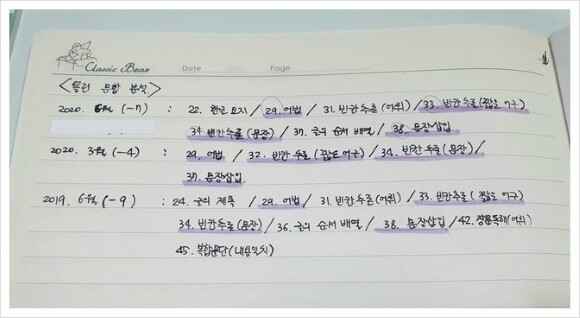 Classic Bear Date Page
<틀린 문항 분석>
2020. 6월 (-7) : 22. 한글 요지 / 29. 어법 / 31. 빈칸추론 (어휘) / 33. 빈칸추론 (짧은 어구)
34. 빈칸추론 (문장) / 37. 글의 순서 배열 / 38. 문장삽입
2020. 3월 (-4) : 29. 어법 / 32. 빈칸추론 (짧은 어구) / 34. 빈칸추론 (문장) /
39. 문장삽입.
2019. 6월 (-9) : 24. 글의 제목 / 29. 어법 / 31. 빈칸추론 (어휘) / 33. 빈칸추론 (짧은 어구)
34. 빈칸추론 (문장) / 36. 글의 순서 배열 / 38. 문장삽입 / 42. 장문독해 (어휘)
45. 복합문단 (내용일치)